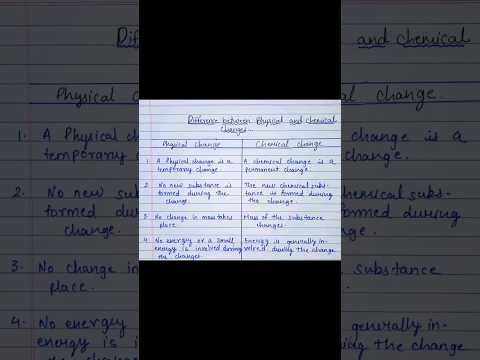 Diff
and chemical
Physical
change.
1. A Physical
temporary
change is a
change.
2. No new
formed
change.
chemical subs-
formed during
3. No change in
place.
substance
4. No energy
energy is
generally in-
ing the change
Difference between Physical and chemical
Changes.
Physical Change
Chemical change
1. A Physical change is a
temporary change.
A chemical change is a
permanent change.
2. No new substance is
formed during the
change.
The new chemical subs-
tance is formed during
the change.
3. No change in mass takes
place.
Mass of the substance
changes.
4. No energy or a small
energy is involved during
the changes
Energy is generally in-
volved during the change